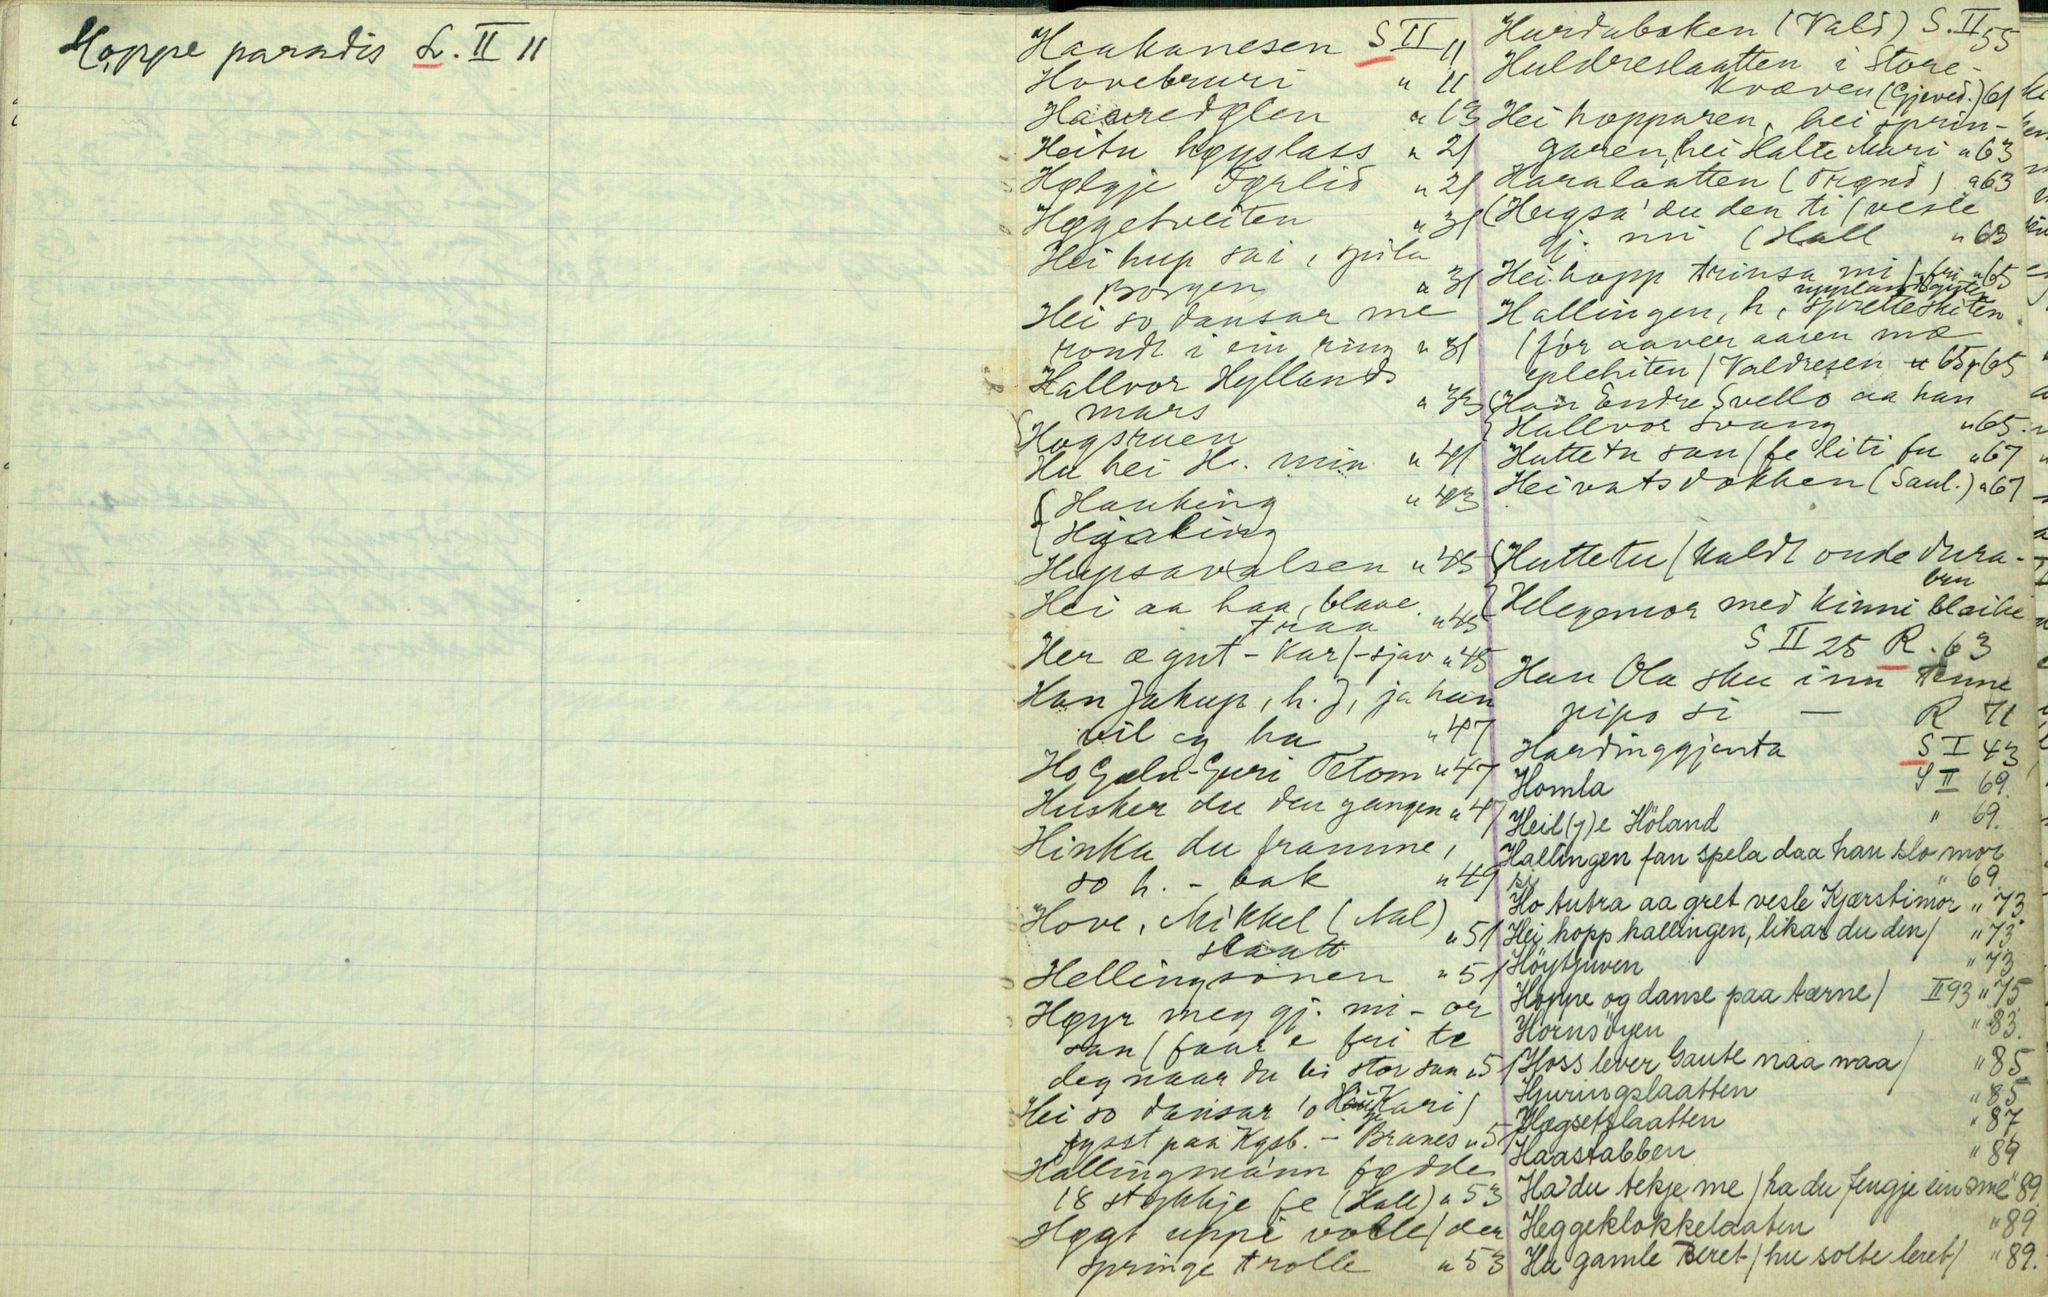 Hoppe paradis L. II 11
Haakanesen S II 11
Hovebruri " 11
Haaredølen " 13
Heitu høyslass " 21
Hølgje Førlid " 21
Høgetveiten " 31
Hei hup sai, spila
Borgen " 31
Hei so dansar me
rondt i ein ring " 31
Hallvor Hyllands
mars " 33
Hogsruen
Hu hei H. min " 41
Hauking " 43
Hjaking
Hupsavalsen " 45
Hei aa haa, blaae
traa " 45
Her æ gut - Kar/-sjav " 45
Han Jakup, h. J, ja han
vil eg ha " 47
Ho Galn-Guri Tetom " 47
Husker du den gangen " 47
Hinka du framme,
so h. - bak " 49
Hove, Mikkel (Nal)
slaatt " 51
Hellingsonen " 51
Høyr meg gj. mi - or
san (faar e fri te
deg naar du bi stor san " 51
Hei so dansar 10 Kari/
tysst paa Kgsb. - Branes " 51
Hallingmann fødde
18 stykkje fe (Hall) " 53
Høgt uppi volle/der
springe trolle " 53
Hurdabaken (Vald) S. II 55
Huldreslaatten i Store-
Kvæven (Gjøved.) 61
Hei hopparen, hei sprin-
garen, hei Halte Mari " 63
Haralaatten (Trønd) " 63
(Hugsa' du den ti (vesle
gj. mi (Hall " 63
Hei hopp trinsa mi/-fri " 65
Hallingen, h, spretteskiten
(fór aaver aasen mæ
eplehiten/Valdresen " 65, 65
Han Endre Svello aa han
Hallvor Svang " 65
Huttetu san/fe liti fu " 67
Heivatsdokken (Saul.) " 67
Huttetu/kaldt onde dura-
bru
Helegemor med kinni bleike
S II 25 R. 63
Han Ola sku inn tenne
pipo si - R 71
Hardinggjenta S I 43
Homla S II 69.
Heil(j)e Höland " 69.
Hallingen fan spela daa han slo mor
si " 69.
Ho tutra aa gret vesle Kjærstimor " 73
Hei hopp hallingen, likar du den/ " 73
Höytjuven " 73
Hoppe og danse paa tærne/ II 93 " 75
Hornsöyen " 83.
Hoss lever Gaute naa naa/ " 85
Hjuringslaatten " 85
Høgsetslaatten " 87
Haastabben " 89
Ha' du tekje me / ha du fengje ein sme " 89
Heggeklokkelaaten " 89
Hu gamle Beret/hu solte leret/ " 89.